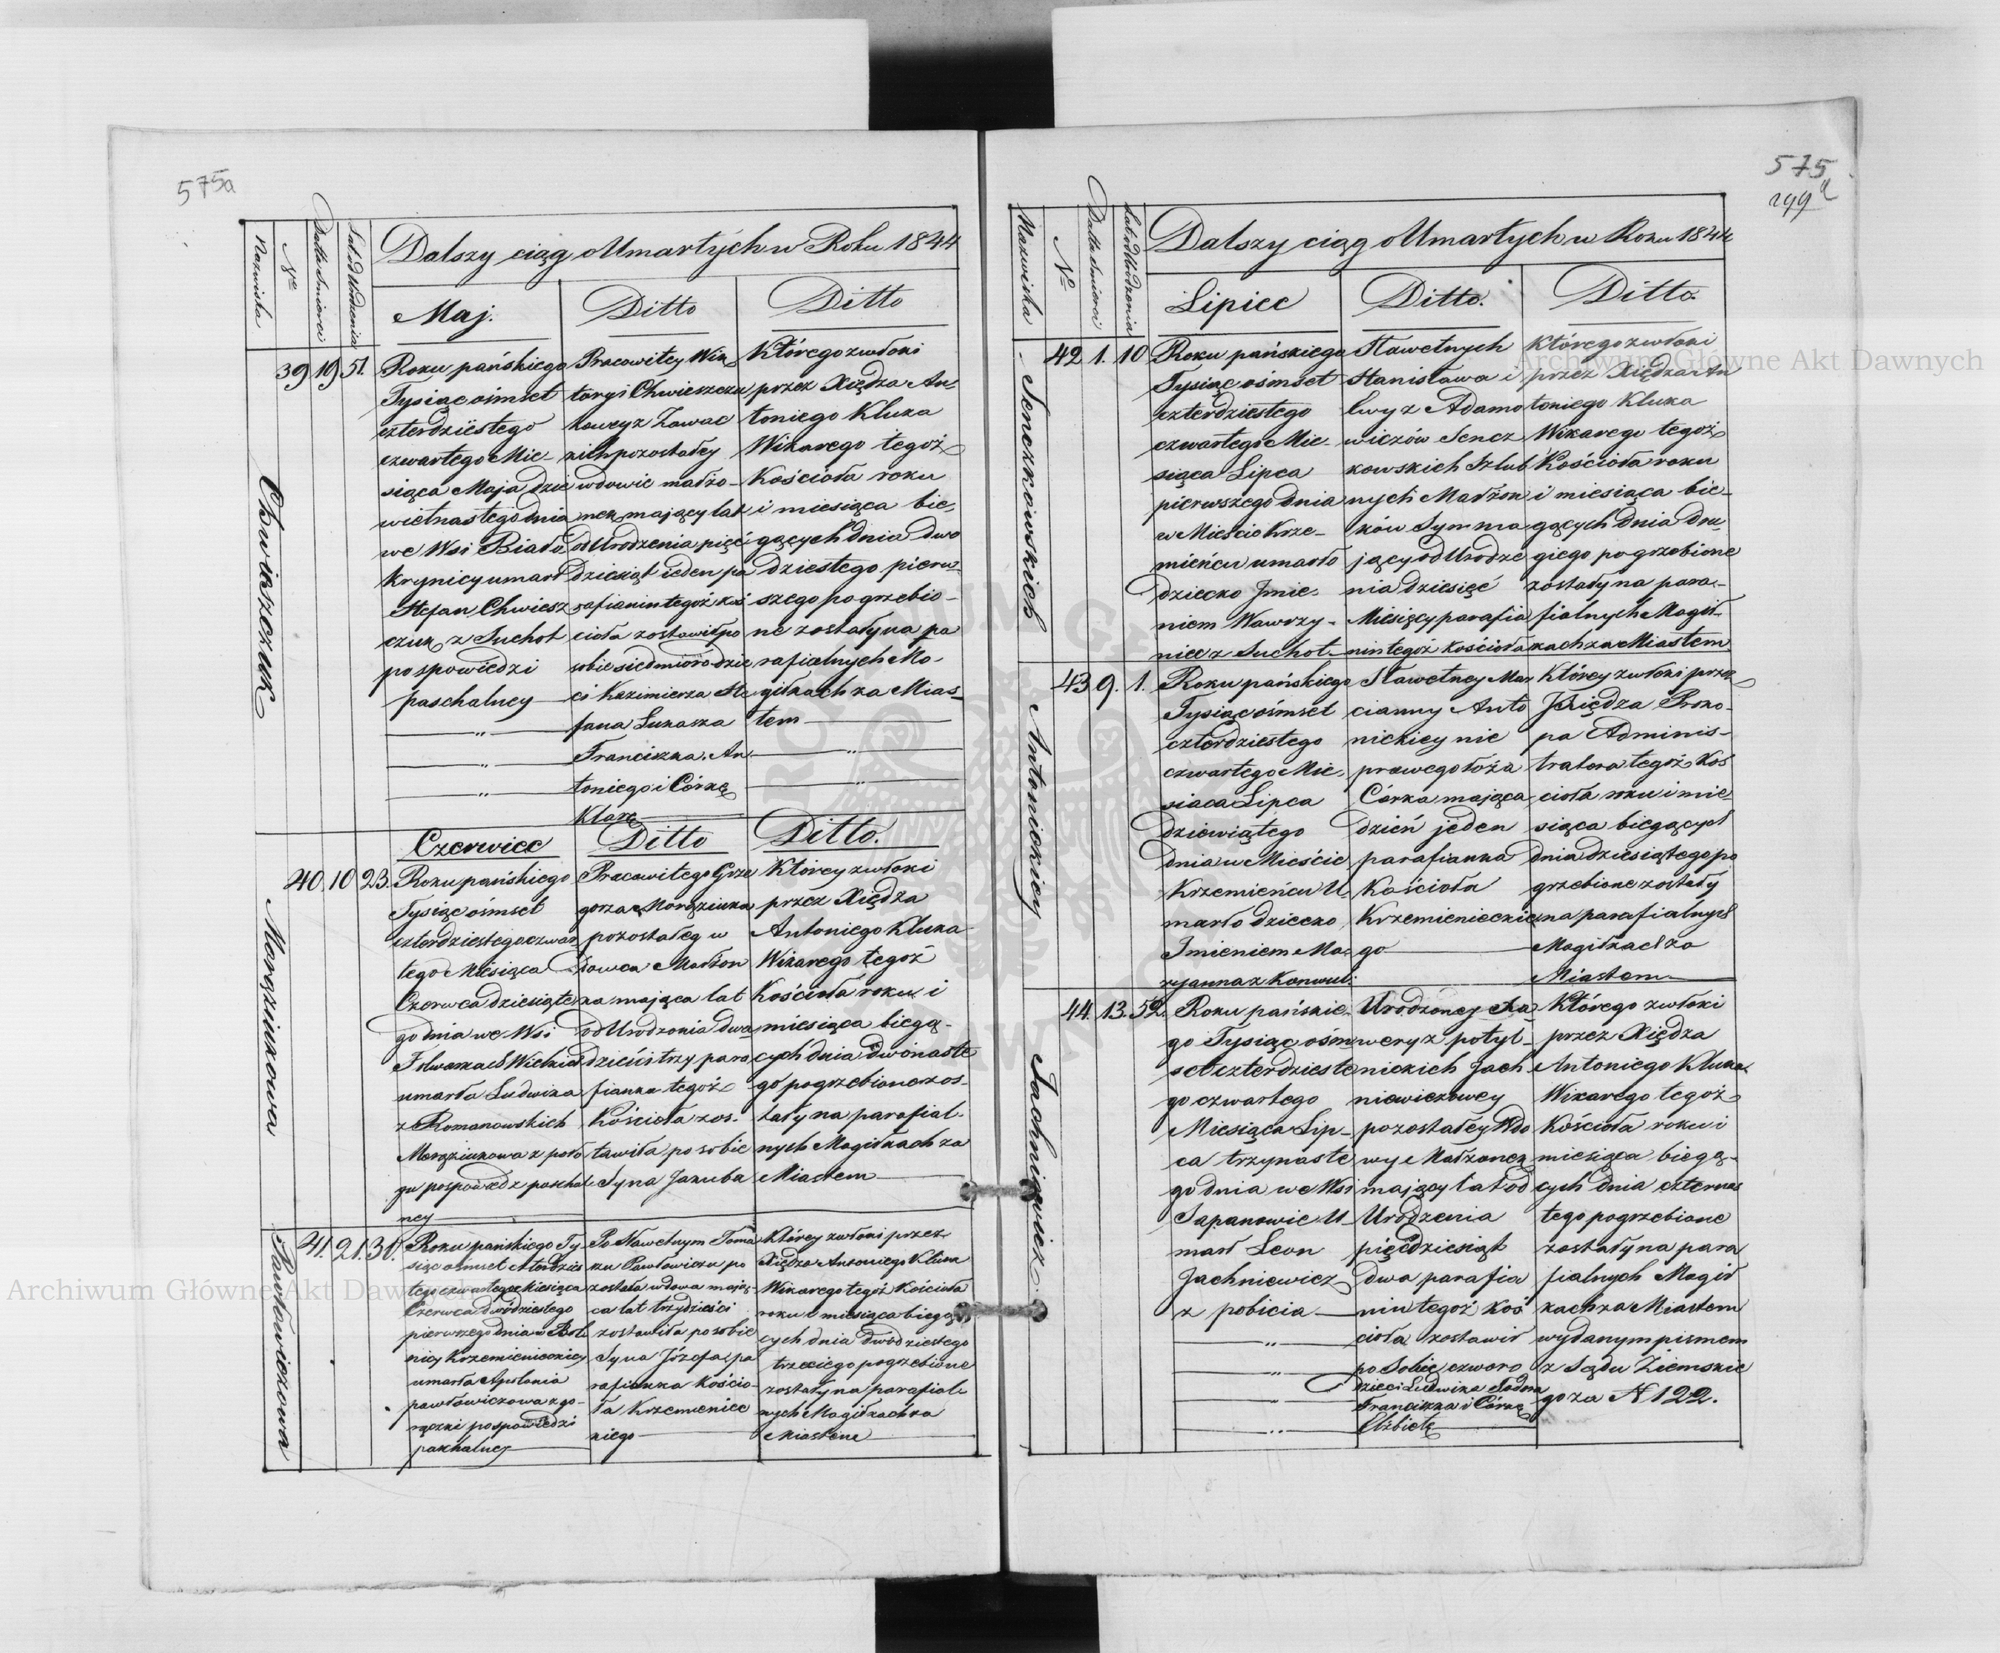 575a
Dalszy ciąg o Umarłych w Roku 1844
Nazwiska
Nº
Datta śmierci
Lat od Urodzenia
Maj.
Ditto
Ditto
Chwiaszczuk
39
19
51.
Roku pańskiego
Tysiąc ośmset
czterdziestego
czwartego Mie-
siąca Maja dzie
wietnastego dnia
we Wsi Biało
krynicy umarł
Stefan Chwiesz
czuk z Suchot
po spowiedzi
paschalney
Pracowitey Wik
toryi Chwieszczu
kowey z Zawac
kich pozostałey
wdowie małżo-
nek mający lat
od Urodzenia pięć
dziesiąt ieden pa
rafianin tegóż koś
cioła zostawił po
sobie siedmioro dzie
ci Kazimierza Ste
fana Łukasza
Franciszka, An
toniego i Córkę
Klarę
Którego zwłoki
przez Xiędza An-
toniego Kluka
Wikarego tegóż
Kościoła roku
i miesiąca bie-
gących dnia dwo
dziestego pierw-
szego pogrzebio-
ne zostały na pa
rafialnych Mo-
giłkach za Mias-
tem
Czerwiec
Ditto
Ditto.
Marąziukowa
40.
10
23.
Roku pańskiego
Tysiąc ośmset
czterdziestego czwar
tego Miesiąca
Czerwca dziesiąte
go dnia we Wsi
Folwarkach Wielkich
umarła Ludwika
z Romanowskich
Marąziukowa z poło
gu po spowiedz paschal
ney
Pracowitego Grze
gorza Marąziuka
pozostałeg w
Małżon
ka mająca lat
od Urodzenia dwa
dzieści trzy para
fianka tegóż
Kościoła zos-
tawiła po sobie
Syna Jakuba
Którey zwłoki
przez Xiędza
Antoniego Kluka
Wikarego tegóż
Kościoła roku i
miesiąca biegą-
cych dnia dwónaste
go pogrzebione zos-
tały na parafial-
nych Mogiłkach za
Miastem
Pawłowiczowa
41.
21.
30.
Roku pańskiego Ty-
siąc ośmset czterdzies
tego czwartego Miesiąca
Czerwca dwódziestego
pierwszego dnia w Bol
nicy Krzemienieckiey
umarła Apolonia
Pawłowiczowa z go-
rączki po spowiedzi
paschalney
Po Sławetnym Toma
szu Pawłowiczu po
została wdowa mają-
ca lat trzydzieści
zostawiła po sobie
Syna Józefa, pa
rafianka Kościo-
ła Krzemieniec
kiego
Którey zwłoki przez
Xiędza Antoniego Kluka
Wikarego tegóż Kościoła
roku i miesiąca biegą
cych dnia dwódziestego
trzeciego pogrzebione
zostały na parafial-
nych Mogiłkach za
Miastem
575
299
Dalszy ciąg o Umarłych w Roku 1844
Nazwiska
Nº
Datta śmierci
Lat od Urodzenia
Lipiec
Ditto.
Ditto.
Senczkowskich
42
1.
10
Roku pańskiego
Tysiąc ośmset
czterdziestego
czwartego Mie-
siąca Lipca
pierwszego dnia
w Mieście Krze-
mieńcu umarło
dziecko Jmie-
niem Wawrzy-
niec z Suchot
Sławetnych
Stanisława i
Ewy z Adamo
wiczów Sencz
kowskich Szlub
nych Małżon
ków Syn ma
jący od Urodze
nia dziesięć
Miesięcy parafia
nin tegóż kościoła
Którego zwłoki
przez Xiędza An
toniego Kluka
Wikarego tegóż
Kościoła roku
i miesiąca bie-
gących dnia dru-
giego pogrzebione
zostały na para-
fialnych Mogił-
kach za Miastem
Antonickiey
43
9.
1.
Roku pańskiego
Tysiąc ośmset
czterdziestego
czwartego Mie-
siąca Lipca
dziewiątego
dnia w Mieście
Krzemieńcu U-
marło dziecko
Jmieniem Ma-
ryanna z Konwuls
Sławetney Mar
cianny Anto
nickiey nie
prawego łoża
Córka mająca
dzień jeden
parafianka
Kościoła
Krzemienieckie
go
Którey zwłoki przez
Xiędza Proko-
pa Adminis-
tratora tegóż Koś
cioła roku i mie-
siąca biegących
dnia dziesiątego po
grzebione zostały
na parafialnych
Mogiłkach za
Miastem
Jachniewicz
44.
13.
52.
Roku pańskie-
go Tysiąc ośm
set czterdzieste
go czwartego
Miesiąca Lip-
ca trzynaste
go dnia we Wsi
Sapanowie U-
marł Leon
Jachniewicz
z pobicia
Urodzoney
z potyl-
nickich Jach
niewiczowey
pozostałey Wdo
wy Małżonek
mający lat od
Urodzenia
pięćdziesiąt
dwa parafia
nin tegóż koś
cioła zostawił
po Sobie czworo
dzieci Ludwika Fadora
Franciszka i Córkę
Elżbietę
Którego zwłoki
przez Xiędza
Antoniego Kluka
Wikarego tegóż
Kościoła roku i
miesiąca biegą-
cych dnia czternas
tego pogrzebione
zostały na para
fialnych Mogił
kach za Miastem
wydanym pismem
z Sądu Ziemskie
go za N 122.
Archiwum Główne Akt Dawnych
Archiwum Główne Akt Dawnych